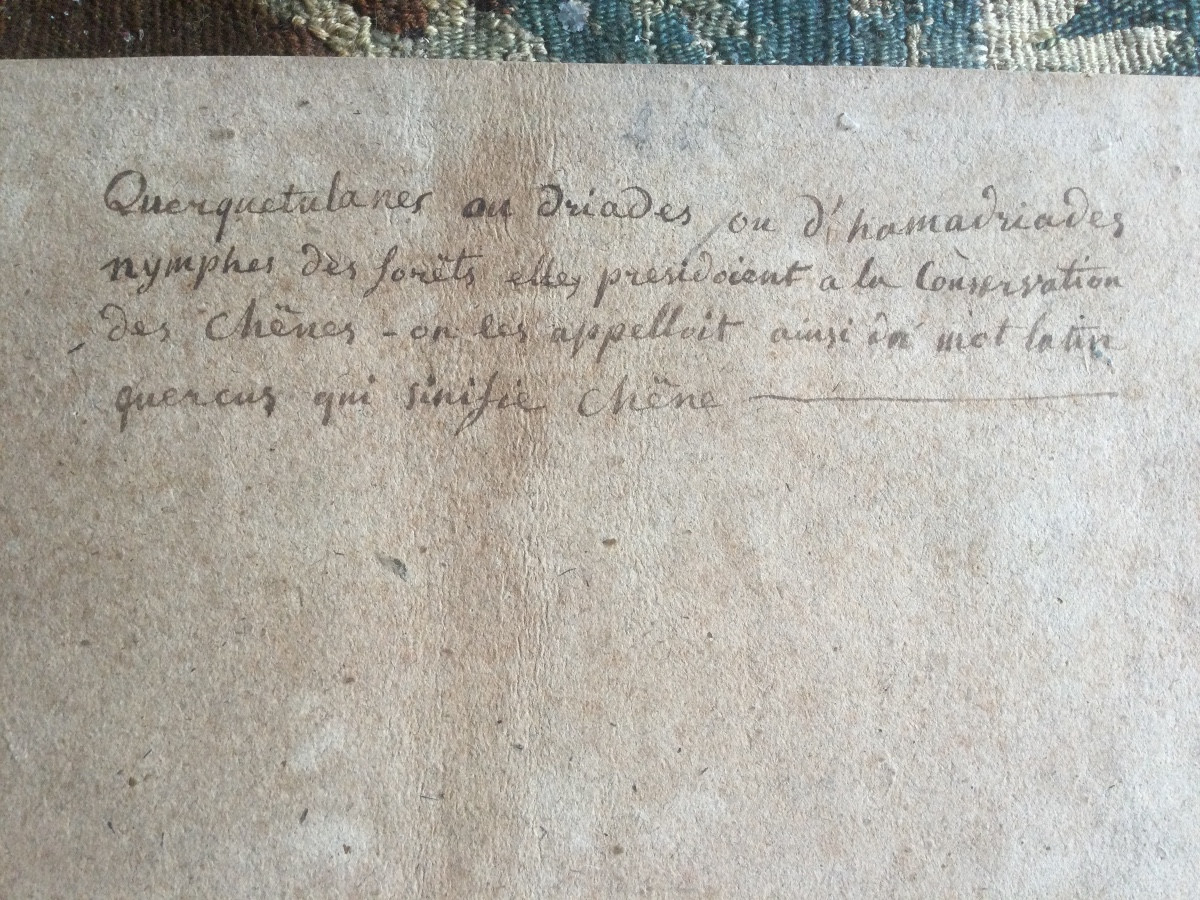 Querquetulanes ou driades ou d'hamadriades
nymphes des forêts elles presidoient a la Conservation
des Chênes - on les appelloit ainsi du mot latin
quercus qui sinifie Chêne